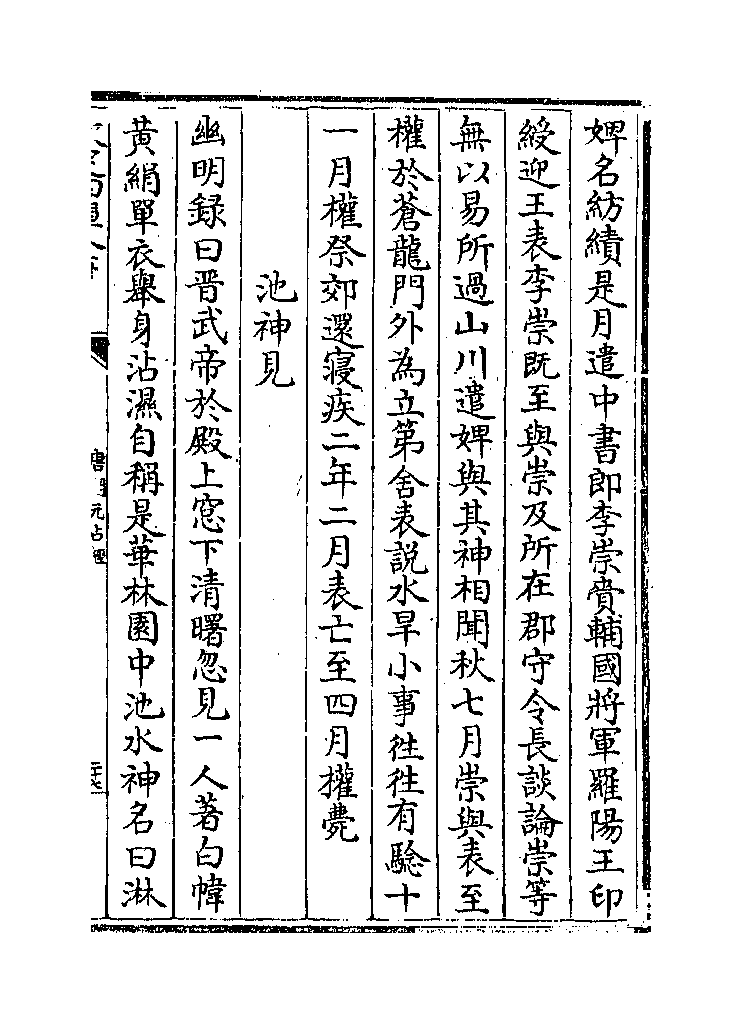 婢名紡績是月遣中書郎李崇賫輔國將軍羅陽王印
綬迎王表李崇既至與崇及所在郡守令長談論崇等
無以易所過山川遣婢與其神相聞秋七月崇與表至
權於蒼龍門外為立第舍表説水旱小事徃徃有驗十
一月權祭郊還寢疾二年二月表亡至四月權薨
池神見
幽明録曰晋武帝於殿上窓下清曙忽見一人著白㡓
黄絹單衣舉身沾濕自稱是華林園中池水神名曰淋
唐開元占經